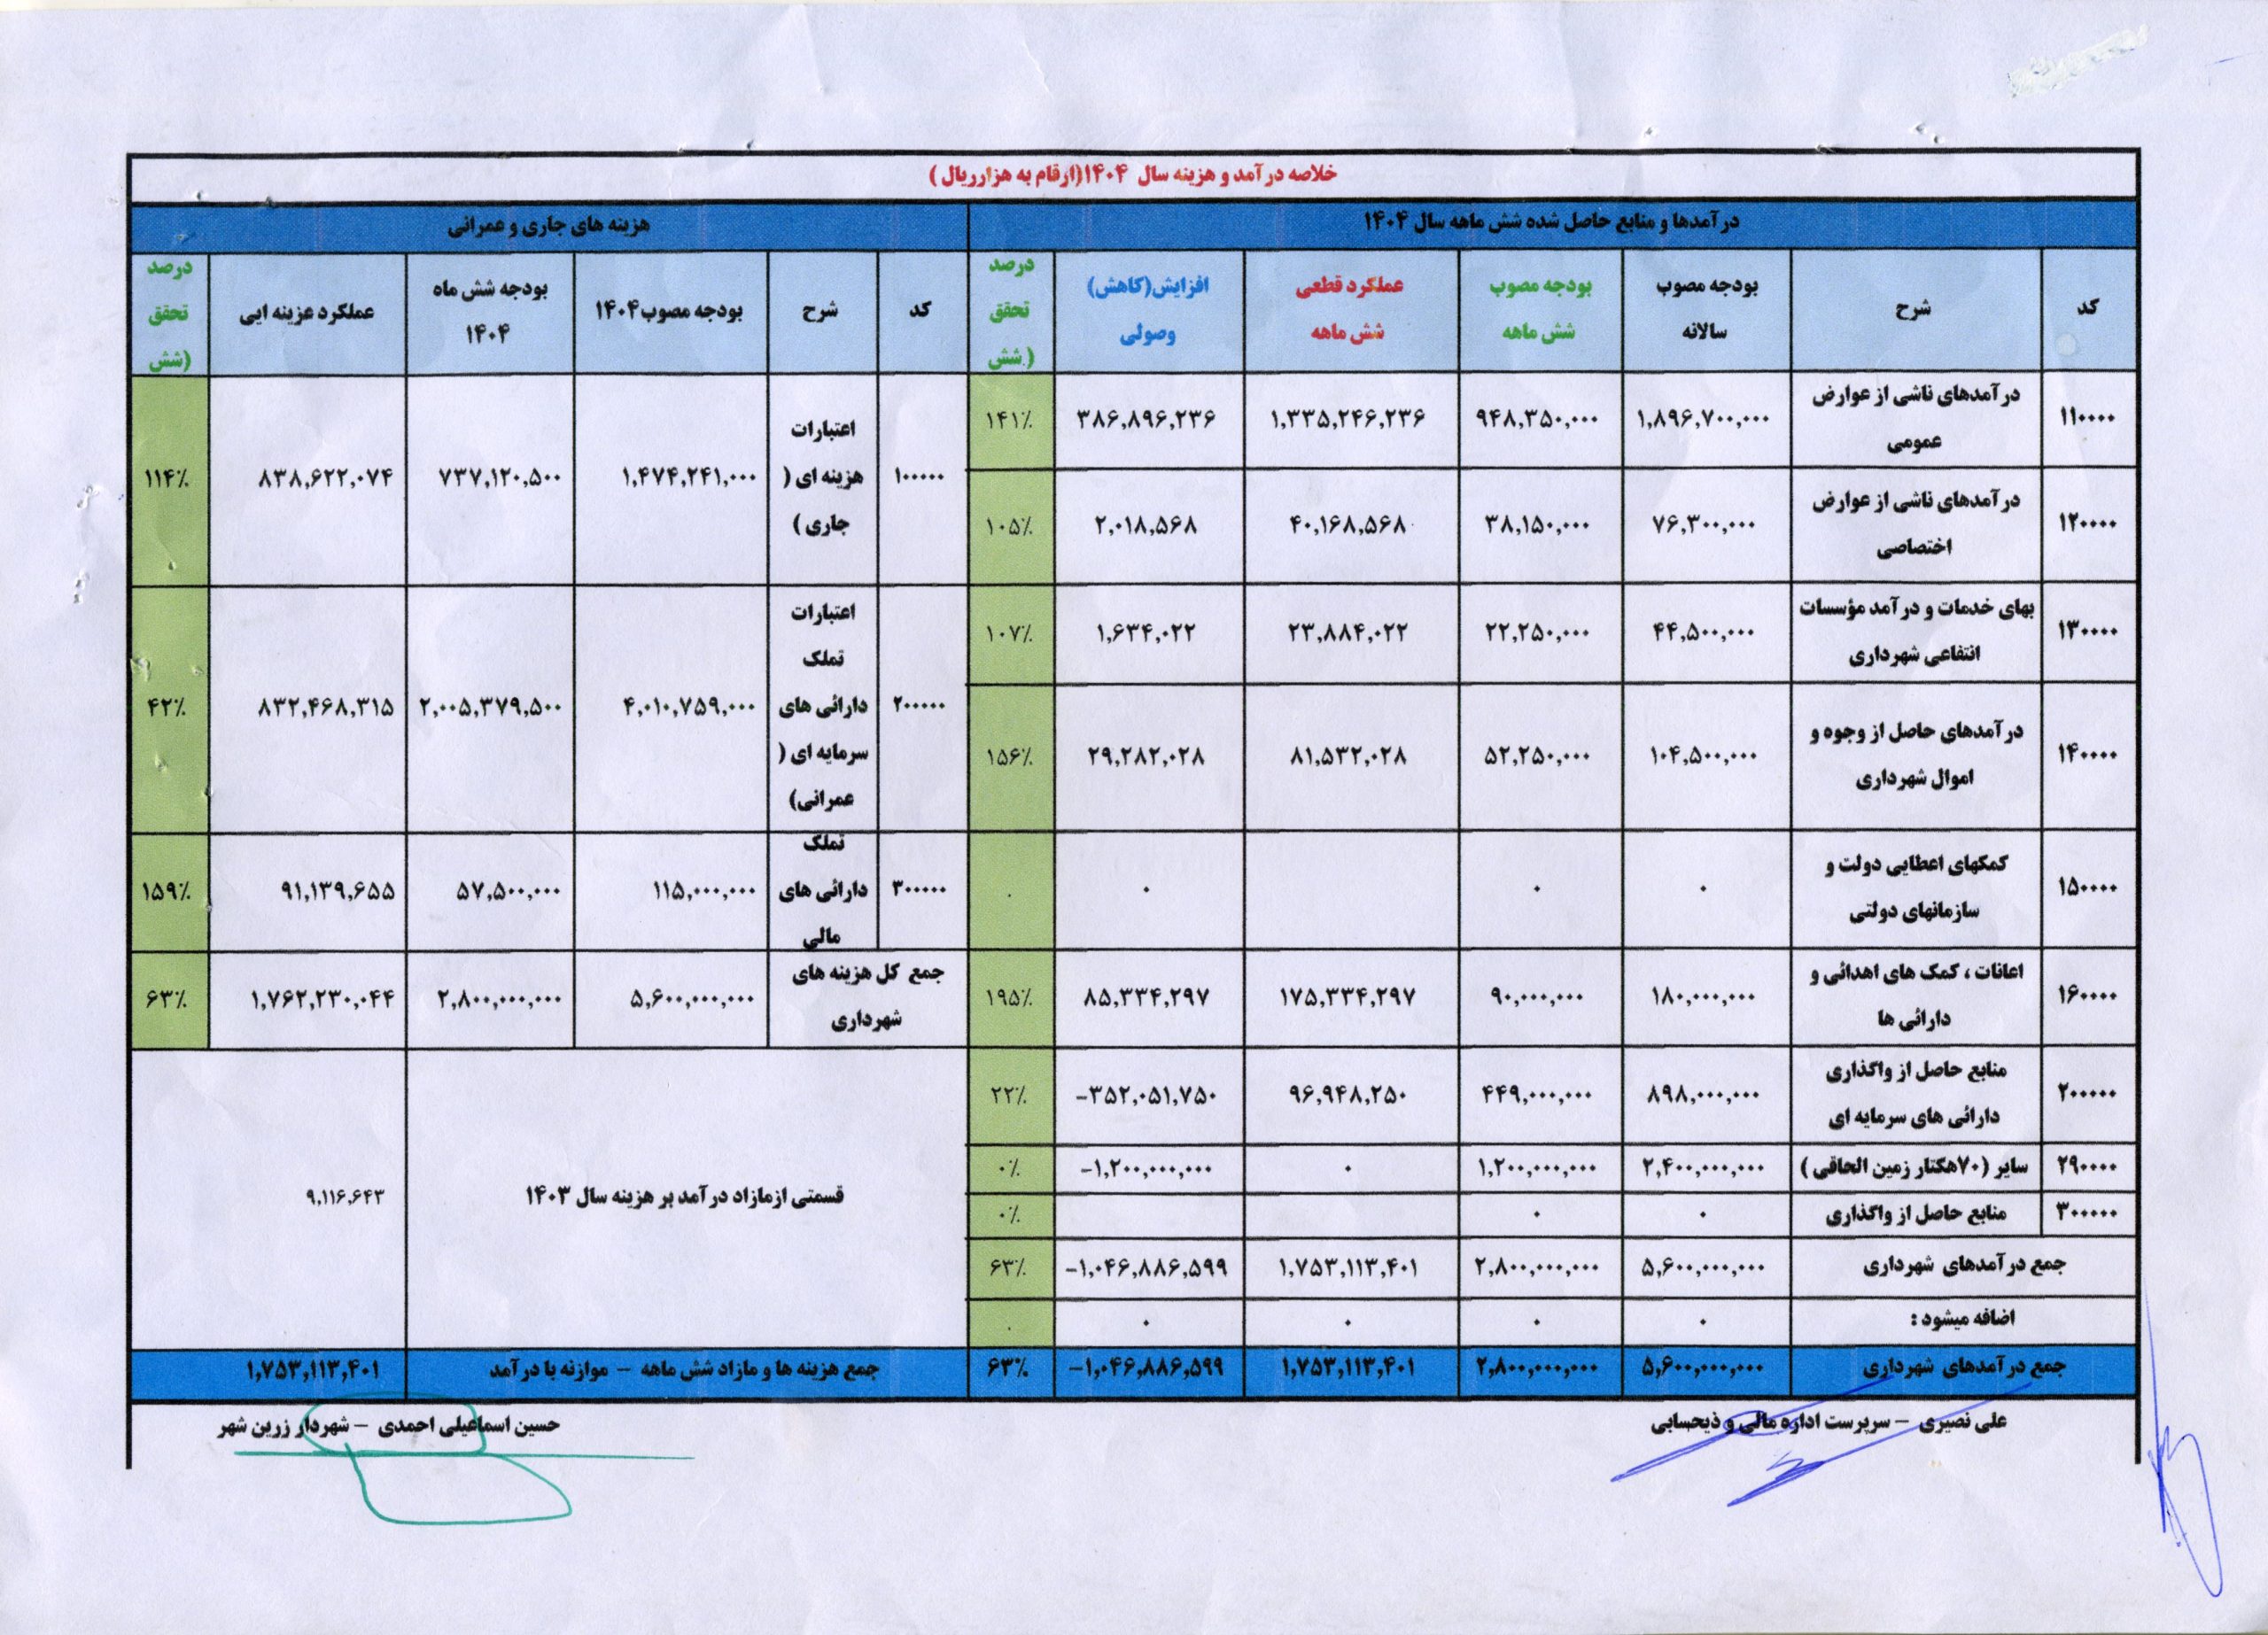 خلاصه درآمد و هزینه سال ۱۴۰۴(ارقام به هزارریال )
درآمدها و منابع حاصل شده شش ماهه سال ۱۴۰۴
هزینه های جاری و عمرانی
کد
شرح
بودجه مصوب
سالانه
بودجه مصوب
شش ماهه
عملکرد قطعی
شش ماهه
افزایش(کاهش)
وصولی
درصد
تحقق
(شش
کد
شرح
بودجه مصوب۱۴۰۴
بودجه شش ماه
۱۴۰۴
عملکرد عزینه ایی
درصد
تحقق
(شش
۱۱۰۰۰۰
درآمدهای ناشی از عوارض
عمومی
۱,۸۹۶,۷۰۰,۰۰۰
۹۴۸,۳۵۰,۰۰۰
۱,۳۳۵,۲۴۶,۲۳۶
۳۸۶,۸۹۶,۲۳۶
۱۴۱٪
۱۲۰۰۰۰
درآمدهای ناشی از عوارض
اختصاصی
۷۶,۳۰۰,۰۰۰
۳۸,۱۵۰,۰۰۰
۴۰,۱۶۸,۵۶۸
۲,۰۱۸,۵۶۸
۱۰۵٪
۱۳۰۰۰۰
بهای خدمات و درآمد مؤسسات
انتفاعی شهرداری
۴۴,۵۰۰,۰۰۰
۲۲,۲۵۰,۰۰۰
۲۳,۸۸۴,۰۲۲
۱,۶۳۴,۰۲۲
۱۰۷٪
۱۴۰۰۰۰
درآمدهای حاصل از وجوه و
اموال شهرداری
۱۰۴,۵۰۰,۰۰۰
۵۲,۲۵۰,۰۰۰
۸۱,۵۳۲,۰۲۸
۲۹,۲۸۲,۰۲۸
۱۵۶٪
۱۵۰۰۰۰
کمکهای اعطایی دولت و
سازمانهای دولتی
۰
۰
۰
۰
۱۶۰۰۰۰
اعانات ، کمک های اهدائی و
دارائی ها
۱۸۰,۰۰۰,۰۰۰
۹۰,۰۰۰,۰۰۰
۱۷۵,۳۳۴,۲۹۷
۸۵,۳۳۴,۲۹۷
۱۹۵٪
۲۰۰۰۰۰
منابع حاصل از واگذاری
دارائی های سرمایه ای
۸۹۸,۰۰۰,۰۰۰
۴۴۹,۰۰۰,۰۰۰
۹۶,۹۴۸,۲۵۰
-۳۵۲,۰۵۱,۷۵۰
۲۲٪
۲۹۰۰۰۰
سایر (۷۰هکتار زمین الحاقی )
۲,۴۰۰,۰۰۰,۰۰۰
۱,۲۰۰,۰۰۰,۰۰۰
۰
-۱,۲۰۰,۰۰۰,۰۰۰
۰٪
۳۰۰۰۰۰
منابع حاصل از واگذاری
۰
۰
۰٪
جمع درآمدهای شهرداری
۵,۶۰۰,۰۰۰,۰۰۰
۲,۸۰۰,۰۰۰,۰۰۰
۱,۷۵۳,۱۱۳,۴۰۱
-۱,۰۴۶,۸۸۶,۵۹۹
۶۳٪
اضافه میشود :
۰
۰
۰
۰
۰
جمع درآمدهای شهرداری
۵,۶۰۰,۰۰۰,۰۰۰
۲,۸۰۰,۰۰۰,۰۰۰
۱,۷۵۳,۱۱۳,۴۰۱
-۱,۰۴۶,۸۸۶,۵۹۹
۶۳٪
۱۰۰۰۰۰
اعتبارات
هزینه ای (
جاری )
۱,۴۷۴,۲۴۱,۰۰۰
۷۳۷,۱۲۰,۵۰۰
۸۳۸,۶۲۲,۰۷۴
۱۱۴٪
۲۰۰۰۰۰
اعتبارات
تملک
دارائی های
سرمایه ای (
عمرانی)
۴,۰۱۰,۷۵۹,۰۰۰
۲,۰۰۵,۳۷۹,۵۰۰
۸۳۲,۴۶۸,۳۱۵
۴۲٪
۳۰۰۰۰۰
تملک
دارائی های
مالی
۱۱۵,۰۰۰,۰۰۰
۵۷,۵۰۰,۰۰۰
۹۱,۱۳۹,۶۵۵
۱۵۹٪
جمع کل هزینه های
شهرداری
۵,۶۰۰,۰۰۰,۰۰۰
۲,۸۰۰,۰۰۰,۰۰۰
۱,۷۶۲,۲۳۰,۰۴۴
۶۳٪
قسمتی ازمازاد درآمد بر هزینه سال ۱۴۰۳
۹,۱۱۶,۶۴۳
جمع هزینه ها و مازاد شش ماهه - موازنه با درآمد
۱,۷۵۳,۱۱۳,۴۰۱
علی نصیری - سرپرست اداره مالی و ذیحسابی
حسین اسماعیلی احمدی - شهردار زرین شهر